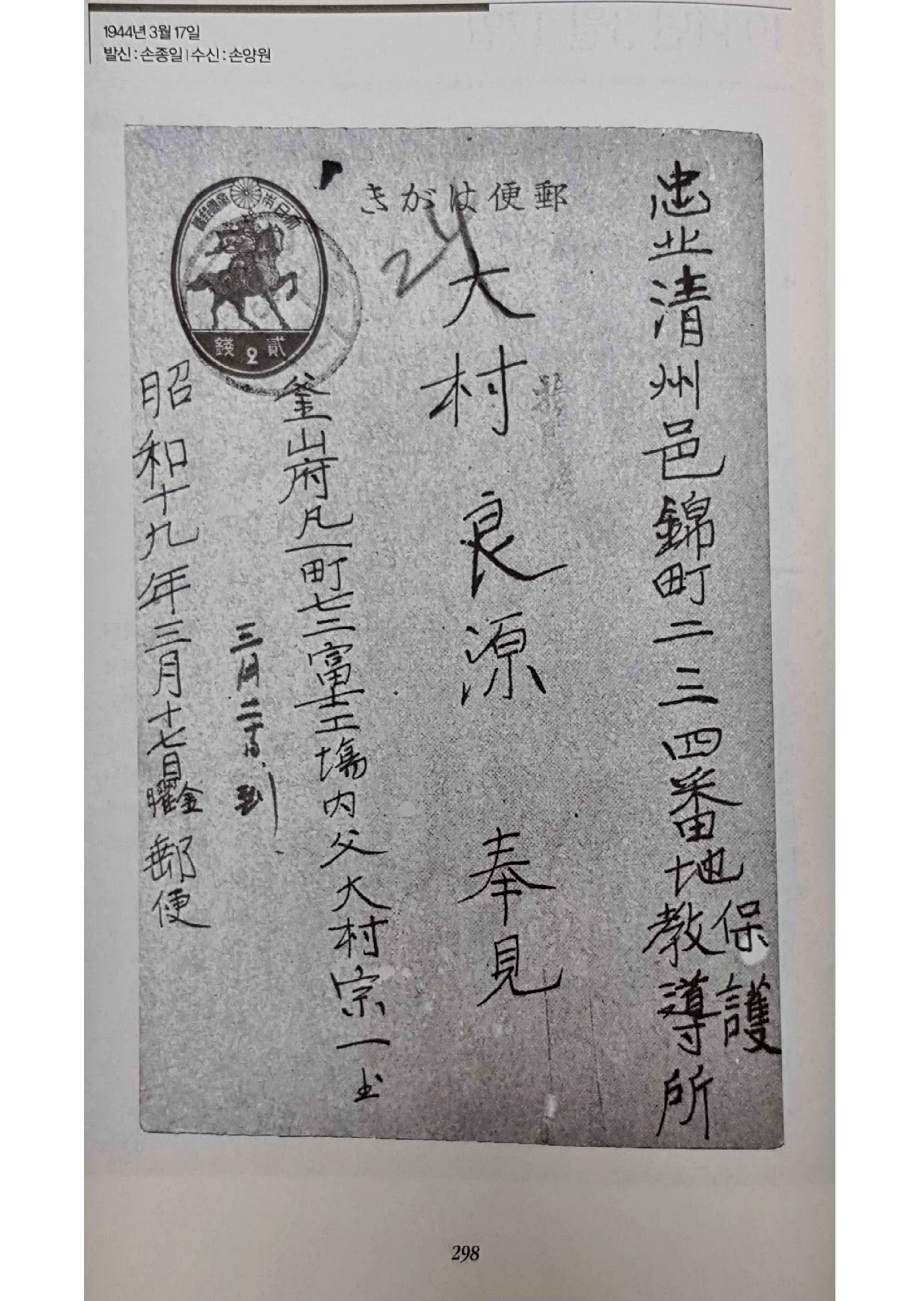 1944년 3월 17일
발신 : 손종일 | 수신 : 손양원
郵便はがき
大日本帝國郵便
貳 2 錢
24
忠北清州邑錦町二三四番地保護
教導所
大村良源 奉見
釜山府凡一町七二富士工場内父大村宗一
三月二十日
昭和十九年三月十七日金曜
郵便
298